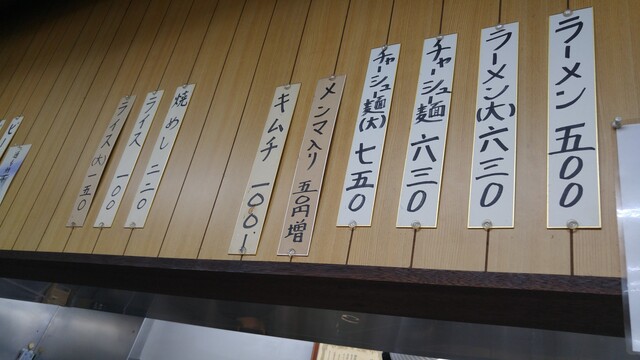 ラーメン 五〇〇
ラーメン(大) 六三〇
チャーシュー麺 六三〇
チャーシュー麺(大) 七五〇
メンマ入り 五〇円増
キムチ 一〇〇.
焼めし 二二〇
ライス 一〇〇
ライス(大) 一五〇